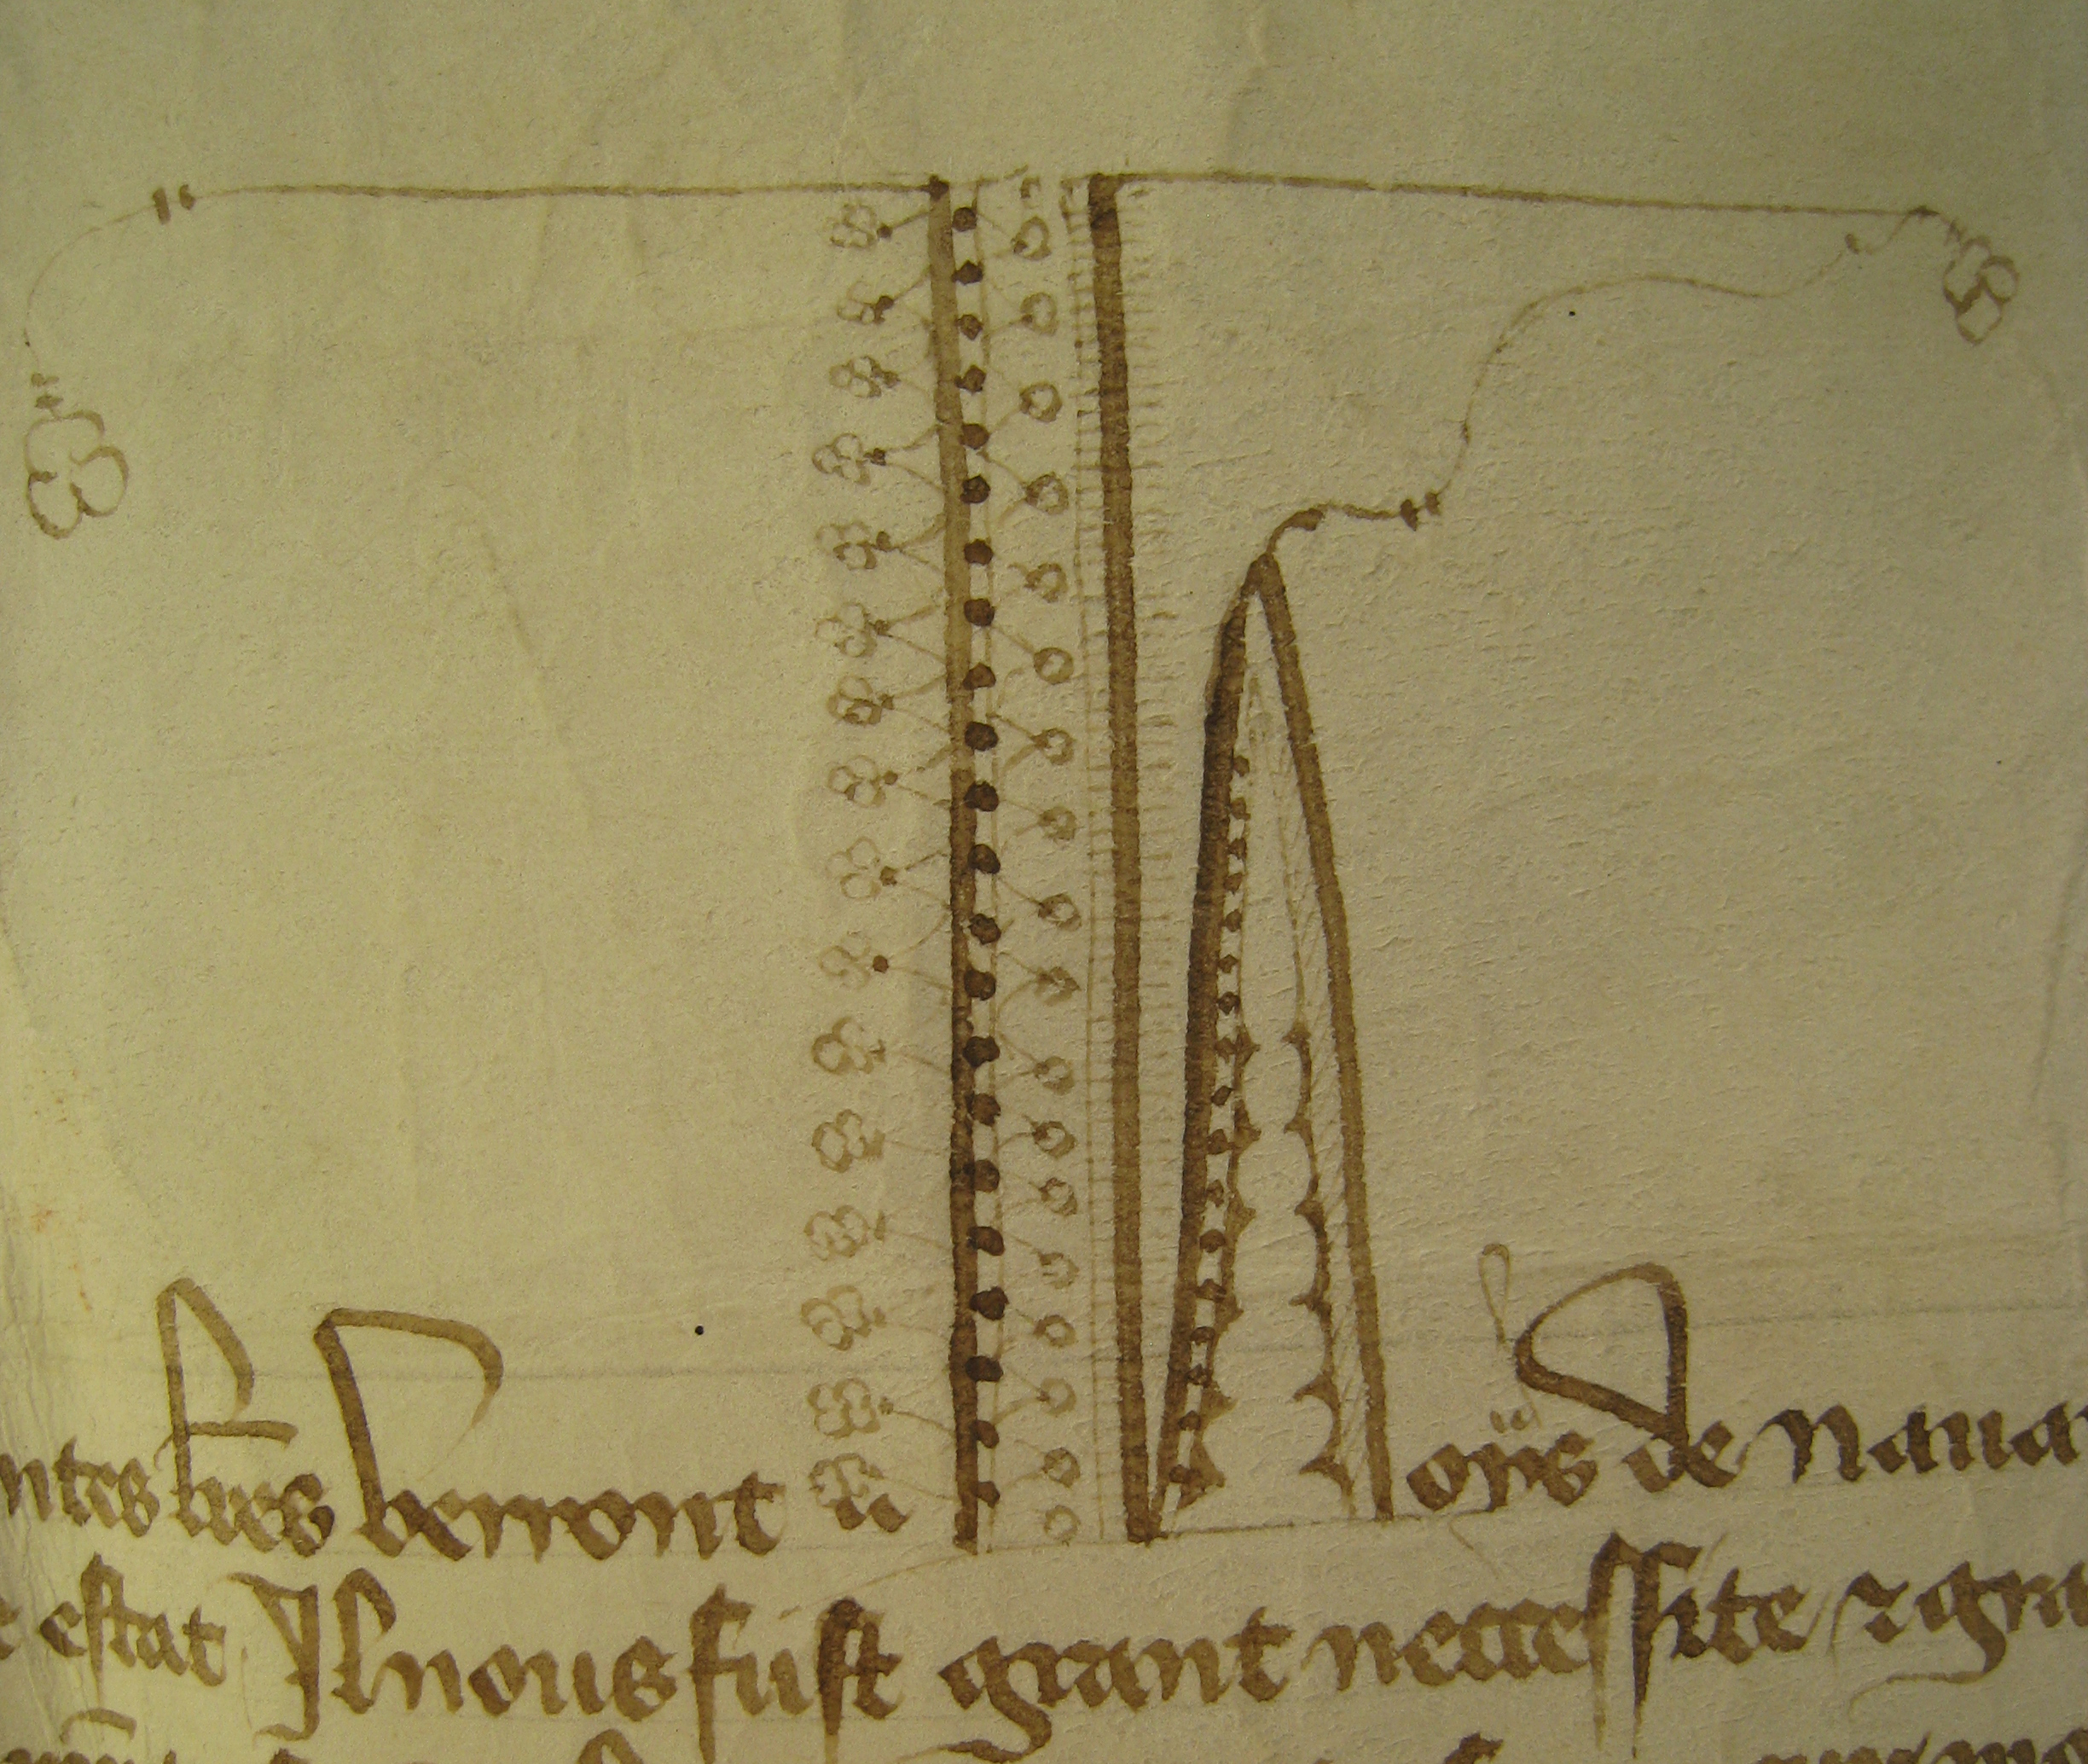 ntes lres verront et oyis de naua
e estat Il nous fust grant neccessite & gra